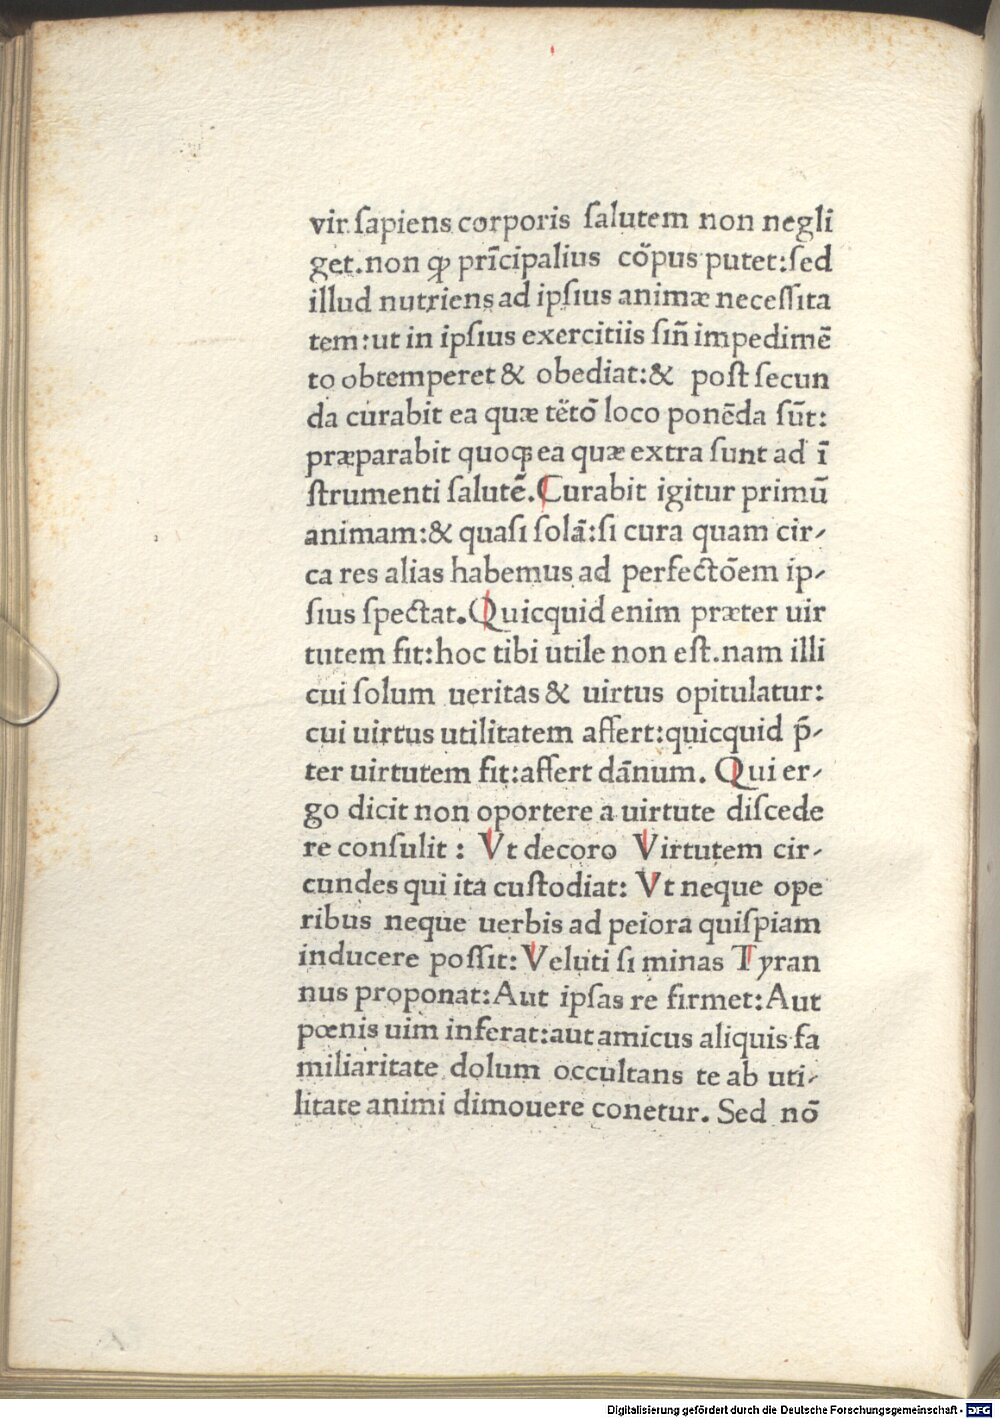 vir ſapiens corporis ſalutem non negli
get.non ꝙ prīcipalius cōpus putet:ſed
illud nutriens ad ipſius animæ neceſſita
tem:ut in ipſius exercitiis ſiñ impedimē
to obtemperet & obediat:& poſt ſecun
da curabit ea quæ tētō loco ponēda ſūt:
præparabit quoqꝫ ea quæ extra ſunt ad ī
ſtrumenti ſalutē.Curabit igitur primū
animam:& quaſi ſolā:ſi cura quam cir-
ca res alias habemus ad perfectōem ip-
ſius ſpectat.Quicquid enim præter uir
tutem fit:hoc tibi utile non eſt.nam illi
cui ſolum ueritas & uirtus opitulatur:
cui uirtus utilitatem affert:quicquid p̄-
ter uirtutem fit:affert dānum. Qui er-
go dicit non oportere a uirtute diſcede
re conſulit : Vt decoro Virtutem cir-
cundes qui ita cuſtodiat: Vt neque ope
ribus neque uerbis ad peiora quiſpiam
inducere poſſit: Veluti ſi minas Tyran
nus proponat:Aut ipſas re firmet:Aut
pœnis uim inferat:aut amicus aliquis fa
miliaritate dolum occultans te ab uti-
litate animi dimouere conetur. Sed nō
Digitalisierung gefördert durch die Deutsche Forschungsgemeinschaft - DFG